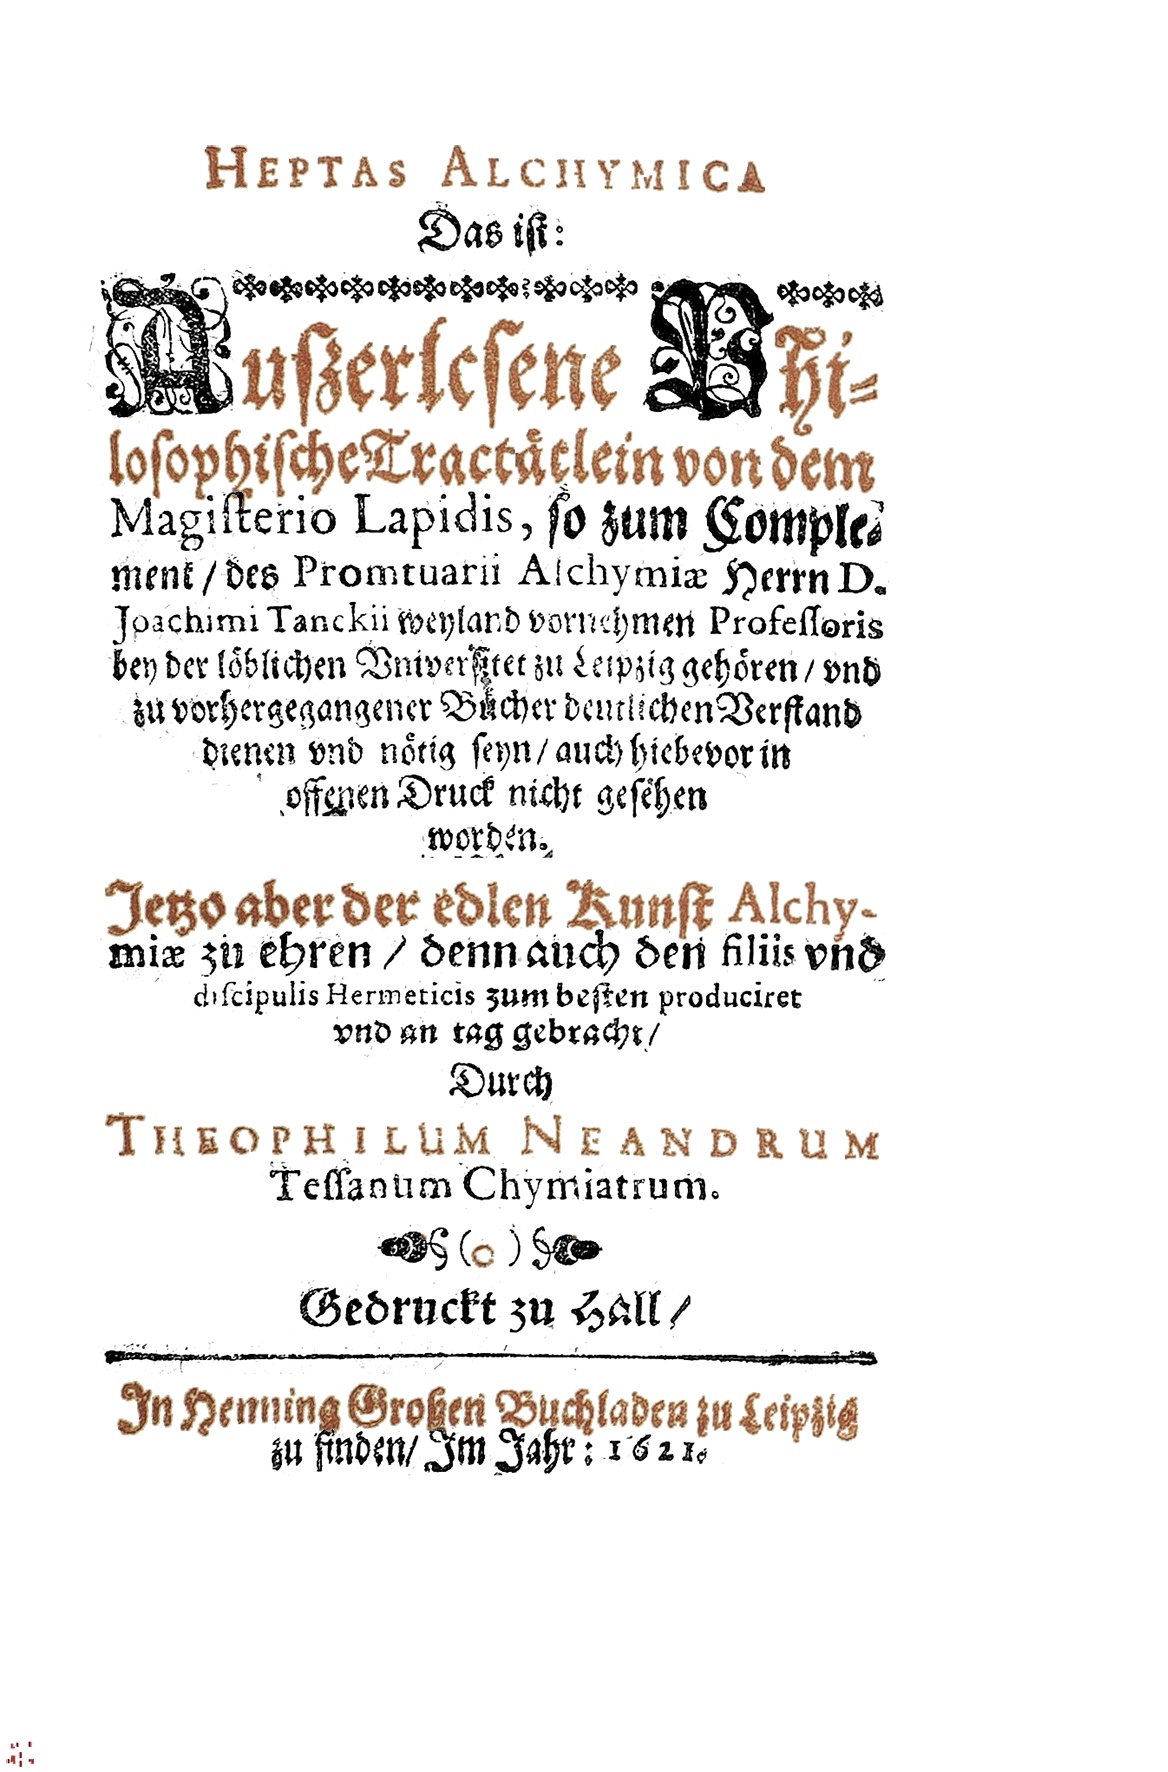 HEPTAS ALCHYMICA
Das iſt:
Auſzerleſene Phi-
loſophiſche Tractaͤtlein von dem
Magiſterio Lapidis, ſo zum Comple-
ment / des Promtuarii Alchymiæ Herrn D.
Joachimi Tanckii weyland vornehmen Profeſſoris
bey der loͤblichen Vniverſitet zu Leipzig gehoͤren / vnd
zu vorhergegangener Buͤcher deutlichen Verſtand
dienen vnd noͤtig ſeyn / auch hiebevor in
offenen Druck nicht geſehen
worden.
Jetzo aber der edlen Kunſt Alchy-
miæ zu ehren / denn auch den filiis vnd
diſcipulis Hermeticis zum beſten produciret
vnd an tag gebracht /
Durch
THEOPHILUM NEANDRUM
Teſſanum Chymiatrum.
( o )
Gedruckt zu Hall /
In Henning Großen Buchladen zu Leipzig
zu finden / Im Jahr : 1621.